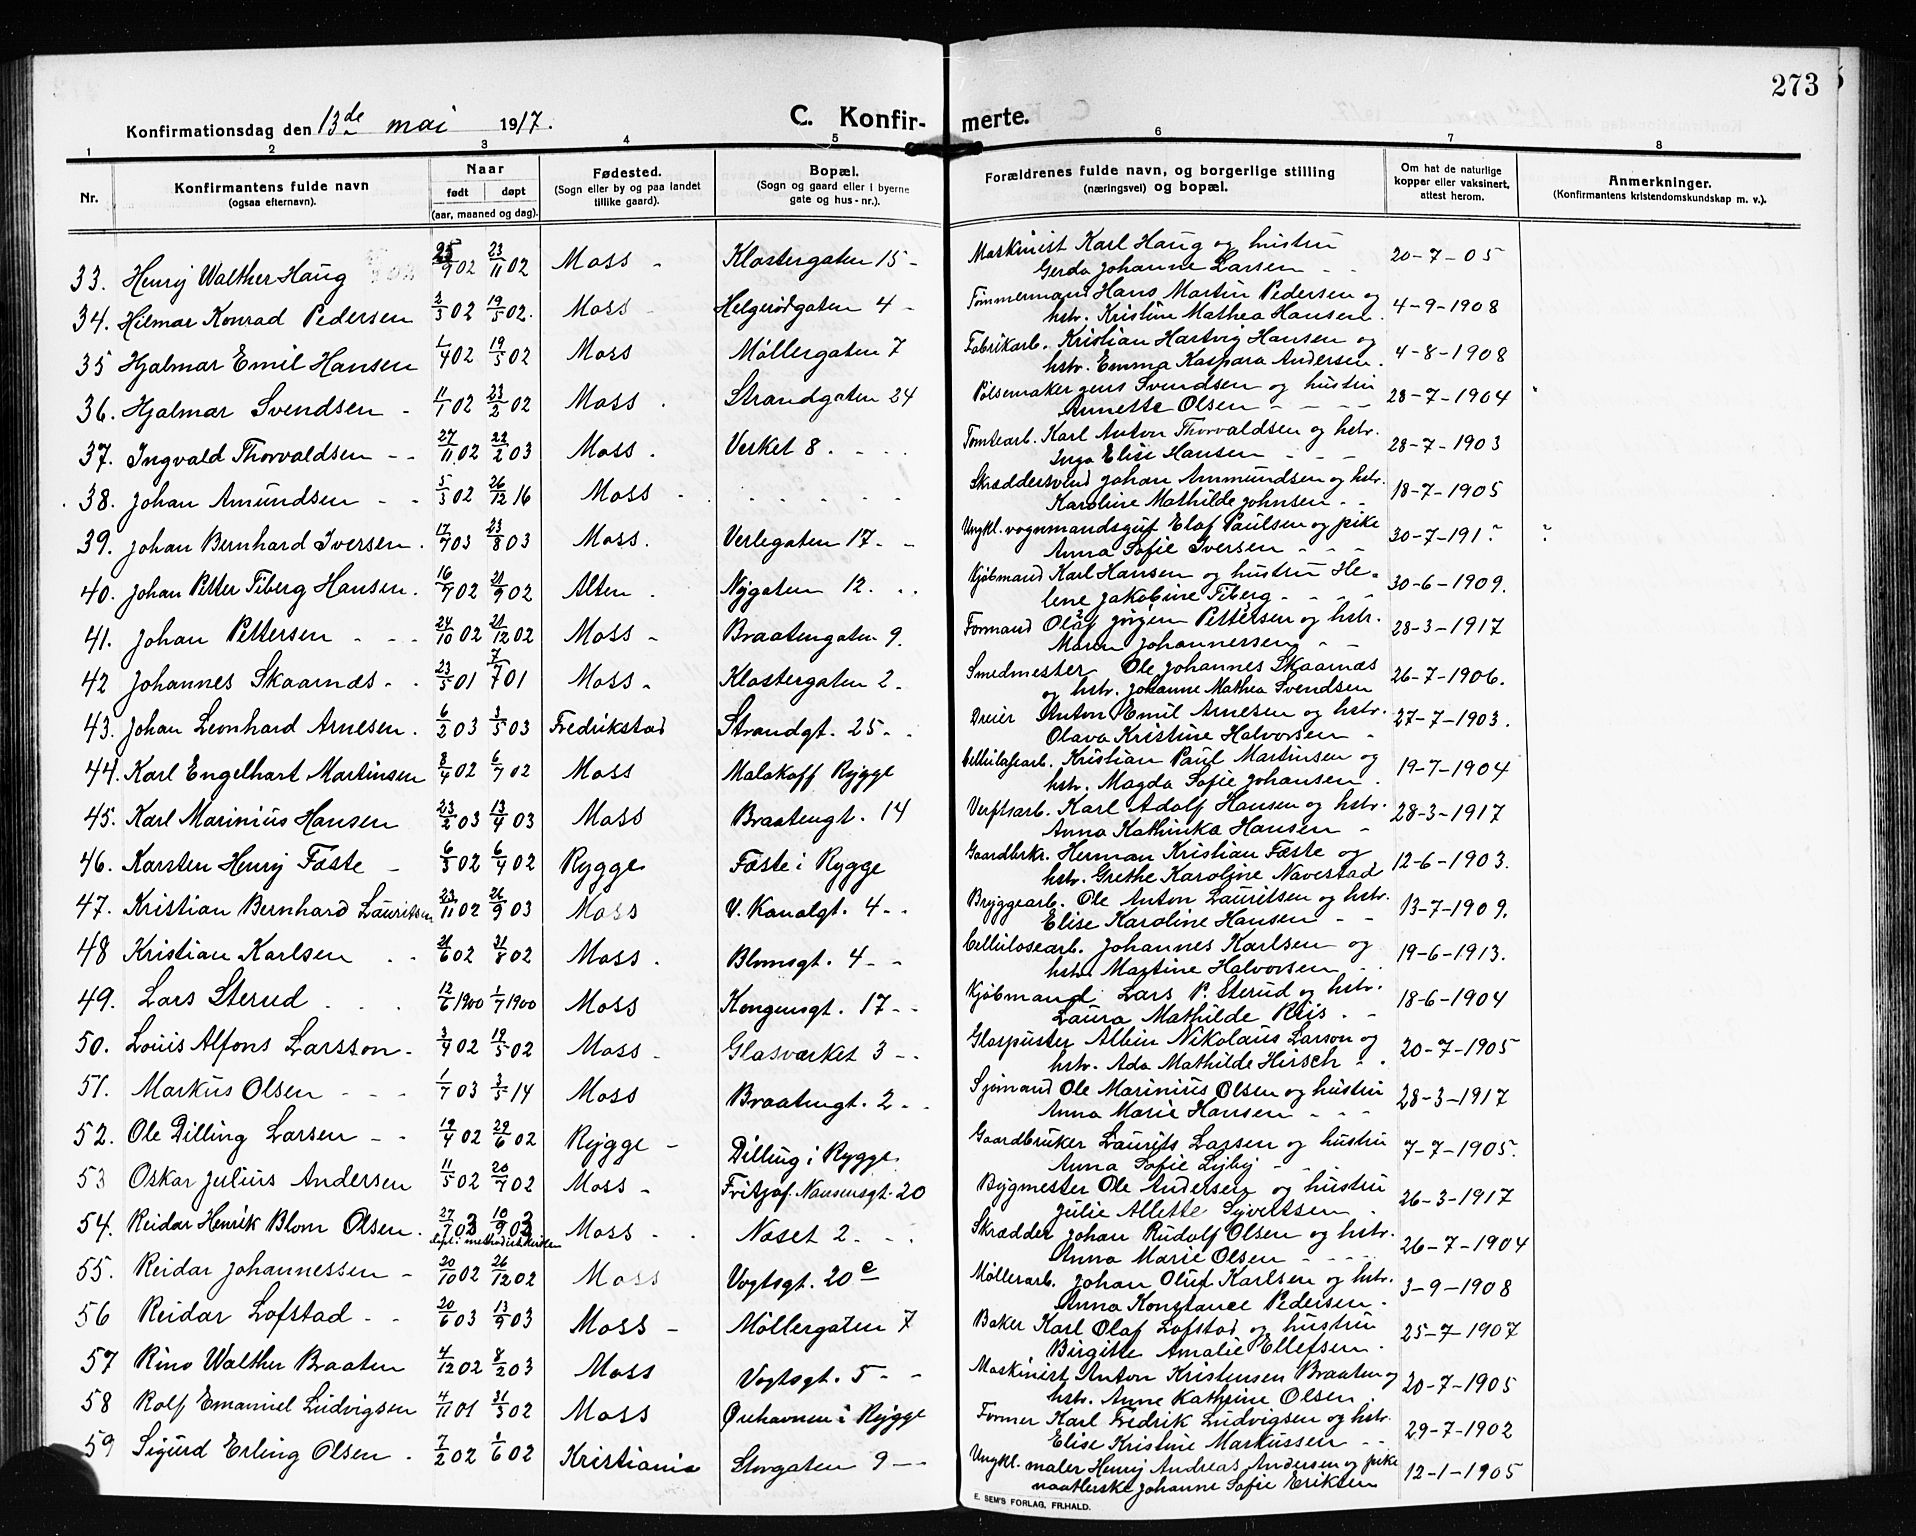 273
Konfirmationsdag den 13de mai 1917.
C. Konfirmerte.
1 2 3 4 5 6 7 8
Nr.
Konfirmantens fulde navn
(ogsaa efternavn).
Naar
født døpt
(aar, maaned og dag).
Fødested.
(Sogn eller by og paa landet
tillike gaard).
Bopæl.
(Sogn og gaard eller i byerne
gate og hus-nr.).
Forældrenes fulde navn, og borgerlige stilling
(næringsvei) og bopæl.
Om hat de naturlige
kopper eller vaksinert,
attest herom.
Anmerkninger.
(Konfirmantens kristendomskundskap m. v.).
33. Henrij Walther Haug 25/9 02 23/11 02 Moss - Klostergaten 15 - Maskinist Karl Haug og hustru 20-7-05
Gerda Johanne Larsen - -
34. Hilmar Konrad Pedersen 2/3 02 19/5 02. Moss - Helgerødgaten 4 - Tømmermand Hans Martin Pedersen og 4-9-1908
hstr. Kristine Mathea Hansen.
35 Hjalmar Emil Hansen 1/4 02 19/5 02 Moss Møllergaten 7 Fabrikarb. Kristian Hartvig Hansen og 4-8-1908
hstr. Emma Kaspara Andersen.
36. Hjalmar Svendsen - 11/1 02 23/2 02 Moss . Strandgaten 24 Pølsemaker Jens Svendsen og hustru 28-7-1904
Annette Olsen - - - -
37. Ingvald Thorvaldsen - - 27/11 02 22/2 03 Moss . Verket 8 . - - - Tomtearb. Karl Anton Thorvaldsen og hstr. 28-7-1903
Inga Elise Hansen - - -
38. Johan Amundsen - - 5/3 02 26/12 16 Moss - - - - - - Skræddersvend Johan Ammundsen og hstr. 18-7-1905
Karoline Mathilde Johnsen - -
39. Johan Bernhard Iversen . 17/7 03 23/8 03 Moss. Verlegaten 17 - - Ungkl. vognmandsgut Elaf Paulsen og pike 30-7-191? ?
Anna Sofie Iversen - - -
40. Johan Petter Fiberg Hansen. 16/7 02 21/9 02 Alten . Nygaten 12. . . Kjøbmand Karl Hansen og hustru He- 30-6-1909.
lene Jakobine Fiberg - - - -
41. Johan Pettersen - - - 24/10 02 21/12 02 Moss - Braatengaten 9. Formand Olaf Jørgen Pettersen og hstr. 28-3-1917
Maren Johannersen - -
42 Johannes Skaarnæs - - 23/5 01 7/7 01 Moss - Klostergaten 2. Smedmester Ole Johannes Skaarnæs 26-7-1906.
og hstr. Johanne Mathea Svendsen
43. Johan Leonhard Arnesen . 6/2 03 3/5 03 Fredrikstad Strandgt. 25 - - Dreier Anton Emil Arnesen og hstr. 27-7-1903.
Olava Kristine Halvorsen -
44. Karl Engelhart Martinsen 8/4 02 6/7 02 Moss Malakoff Rygge Cellulosearb. Kristian Paul Martinsen og 19-7-1904
hstr. Magda Sofie Johansen .
45. Karl Marinius Hansen 23/2 03 13/4 03 Moss Braatengt. 14 Verftsarb. Karl Adolf Hansen og hstr. 28-3-1917
Anna Kathinka Hansen -
46. Karsten Henrij Fæste - 6/3 02 6/4 02 Rygge Fæste i Rygge Gaardbrkr. Herman Kristian Fæste og 12-6-1903.
hstr. Grethe Karoline Navestad
47. Kristian Bernhard Lauritsen 23/11 02 26/9 03 Moss V. Kanalgt. 4 - - Bryggearb. Ole Anton Lauritsen og hstr. 13-7-1909.
Elise Karoline Hansen - -
48 Kristian Karlsen . . 21/6 02 31/8 02 Moss . Blomsgt. 4 - - Cellulosearb. Johannes Karlsen og 19-6-1913.
hstr. Martine Halvorsen - . .
49. Lars Sterud . . . 12/6 1900 1/7 1900 Moss Kongensgt. 17 - - Kjøbmand Lars P. Sterud og hstr. 18-6-1904
Laura Mathilde Riis - -
50. Louis Alfons Larsson - 3/4 02 19/5 02 Moss - Glasværket 3 - - Glaspuster Albin Nikolaus Larson og 20-7-1905
hstr. Ada Mathilde Hirsch - .
51. Markus Olsen - - - 1/7 03 3/5 14 Moss Braatengt. 2 - - Sjømand Ole Marinius Olsen og hustru 28-3-1917
Anna Marie Hansen - - -
52. Ole Dilling Larsen - - 19/4 02 29/6 02 Rygge - Dilling i Rygge Gaardbruker Laurits Larsen og hustru 7-7-1905.
Anna Sofie Lyby - -
53 Oskar Julius Andersen 11/5 02 20/7 02 Moss - Fritjof Nansensgt. 20 Bygmester Ole Andersen og hustru 26-3-1917
Julie Allette Syvertsen .
54. Reidar Henrik Blom Olsen . 27/7 03 10/9 03 Moss - . Næset 2 - - - Skrædder Johan Rudolf Olsen og hstr. 26-7-1904
døpt i methodistkirken Anna Marie Olsen - - - -
55. Reidar Johannessen - 20/10 02 26/12 02 Moss Vogtsgt. 20 c Møllerarb. Johan Oluf Karlsen og hstr. 3-9-1908
Anna Konstance Pedersen .
56 Reidar Lofstad - - 20/6 03 13/9 03 Moss - Møllergaten 7 Baker Karl Olaf Lofstad og hustru 25-7-1907
Birgitte Amalie Ellefsen .
57 Rino Walther Braaten 4/12 02 8/2 03 Moss Vogtsgt. 5 - - Maskinist Anton Kristensen Braaten og 20-7-1905
hstr. Anne Kathrine Olsen .
58 Rolf Emanuel Ludvigsen 4/11 01 31/3 02 Moss Ørehavnen i Rygge Former Karl Fredrik Ludvigsen og hstr. 29-7-1902
Elise Kristine Markussen - -
59 Sigurd Erling Olsen . 7/2 02 1/6 02 Kristiania Storgaten 9 - - Ungkl. maler Henrij Andreas Andersen og pike 12-1-1905
naatlerske Johanne Sofie Eriksen
E. SEM'S FORLAG, FR.HALD.